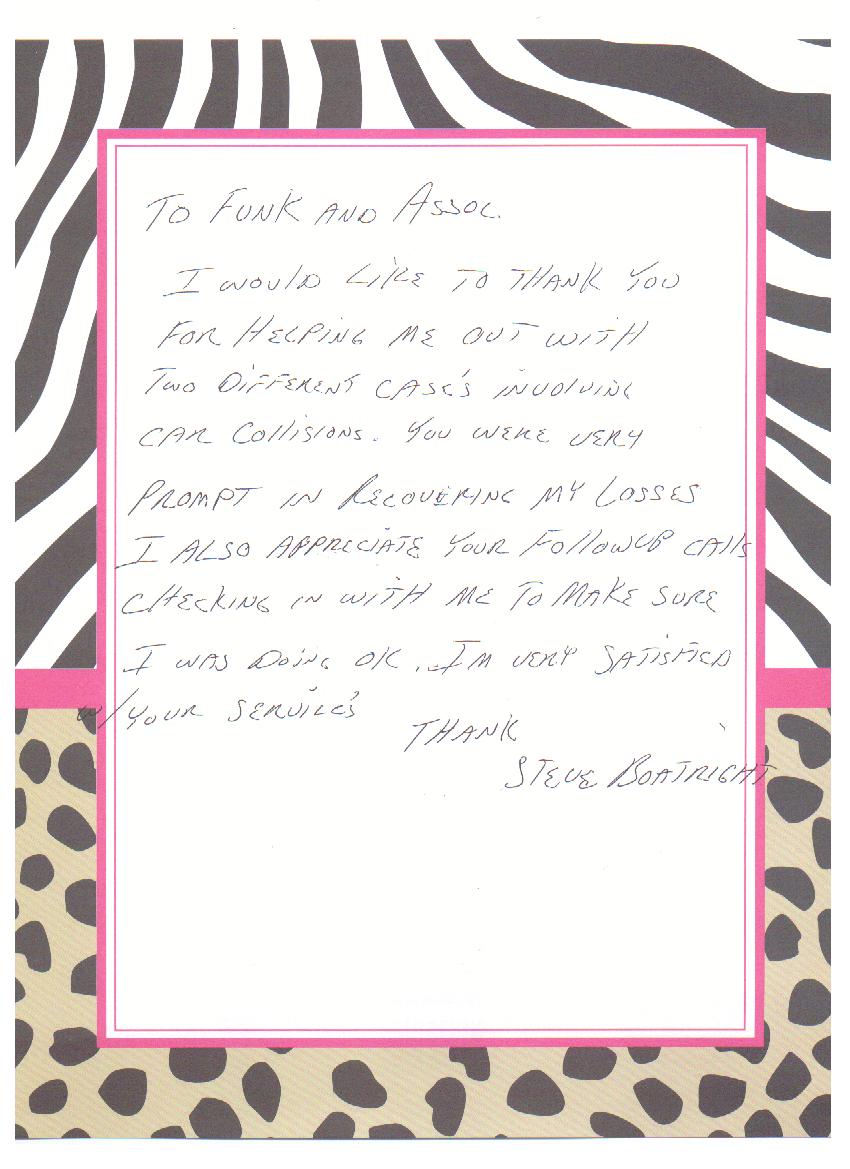 TO FUNK AND ASSOC.
I WOULD LIKE TO THANK YOU
FOR HELPING ME OUT WITH
TWO DIFFERENT CASE'S INVOLVING
CAR COLLISIONS. YOU WERE VERY
PROMPT IN RECOVERING MY LOSSES
I ALSO APPRECIATE YOUR FOLLOWUP CALLS
CHECKING IN WITH ME TO MAKE SURE
I WAS DOING OK. I'M VERY SATISFIED
W/YOUR SERVICE'S
THANK
STEVE BOATRIGHT